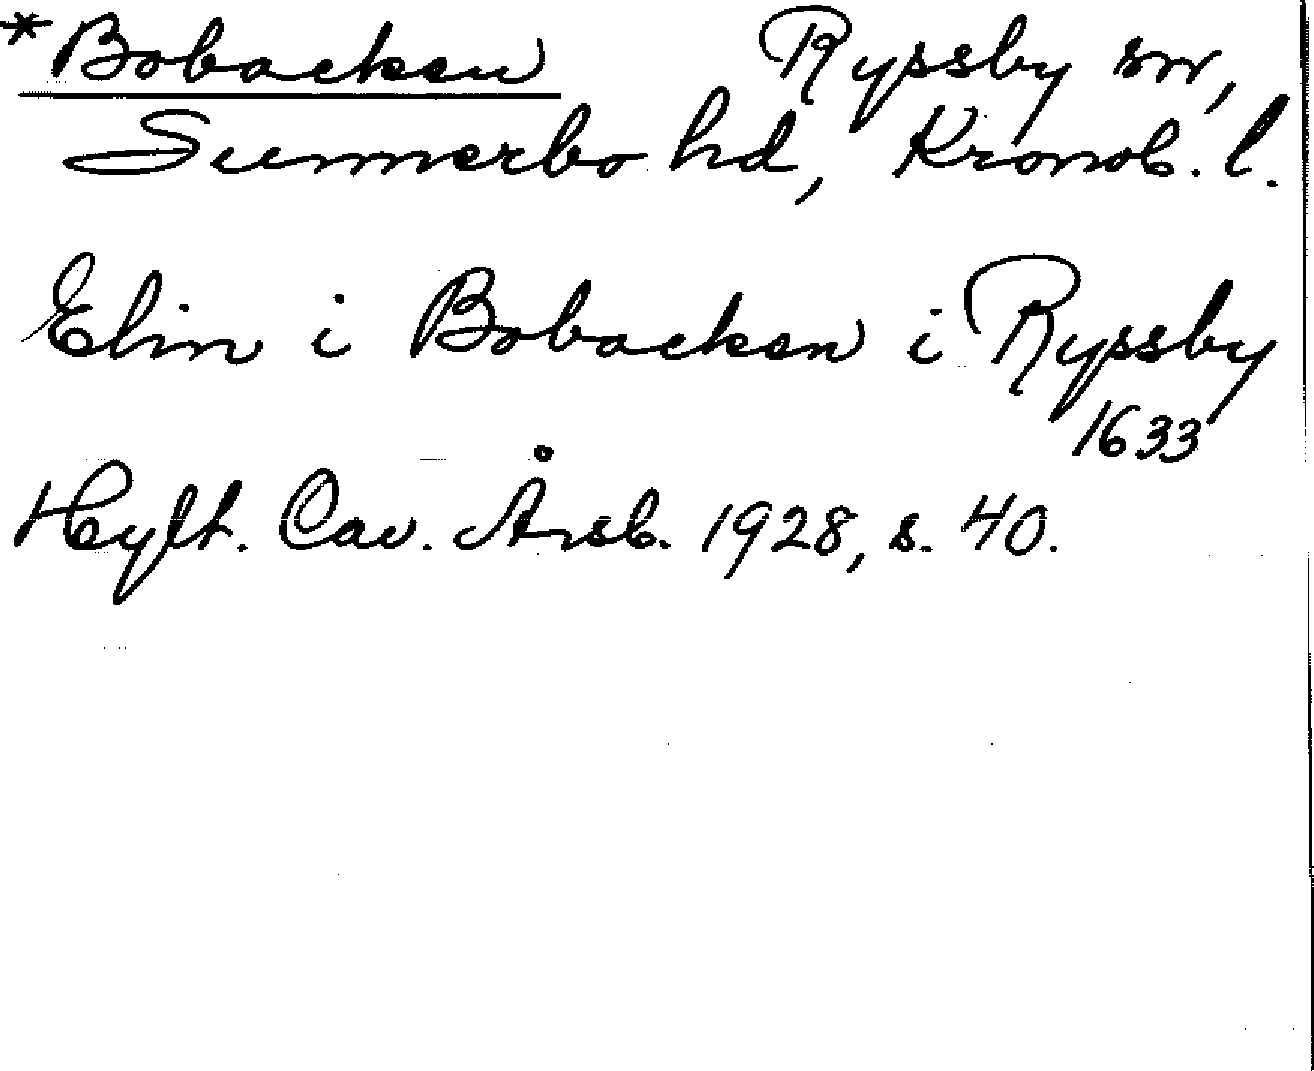 *Bobacken Ryssby sn,
Sunnerbo hd, Kronob. l.
Elin i Bobacken i Ryssby
1633
Hylt. Cav. Årsb. 1928, s. 40.